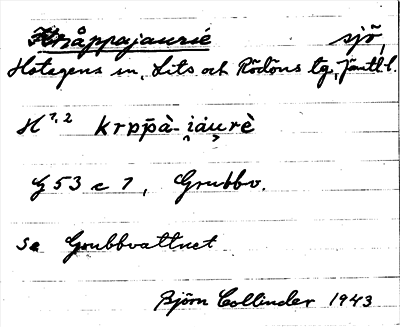 Kråppajaurie sjö,
Hotagens sn, Lits och Rödöns tg, Jämtl. l.
H 1,2 krp̄p̄à-i̯áu̯rè
G 53 c 7, Grubbv.
se Grubbvattnet
Björn Collinder 1943